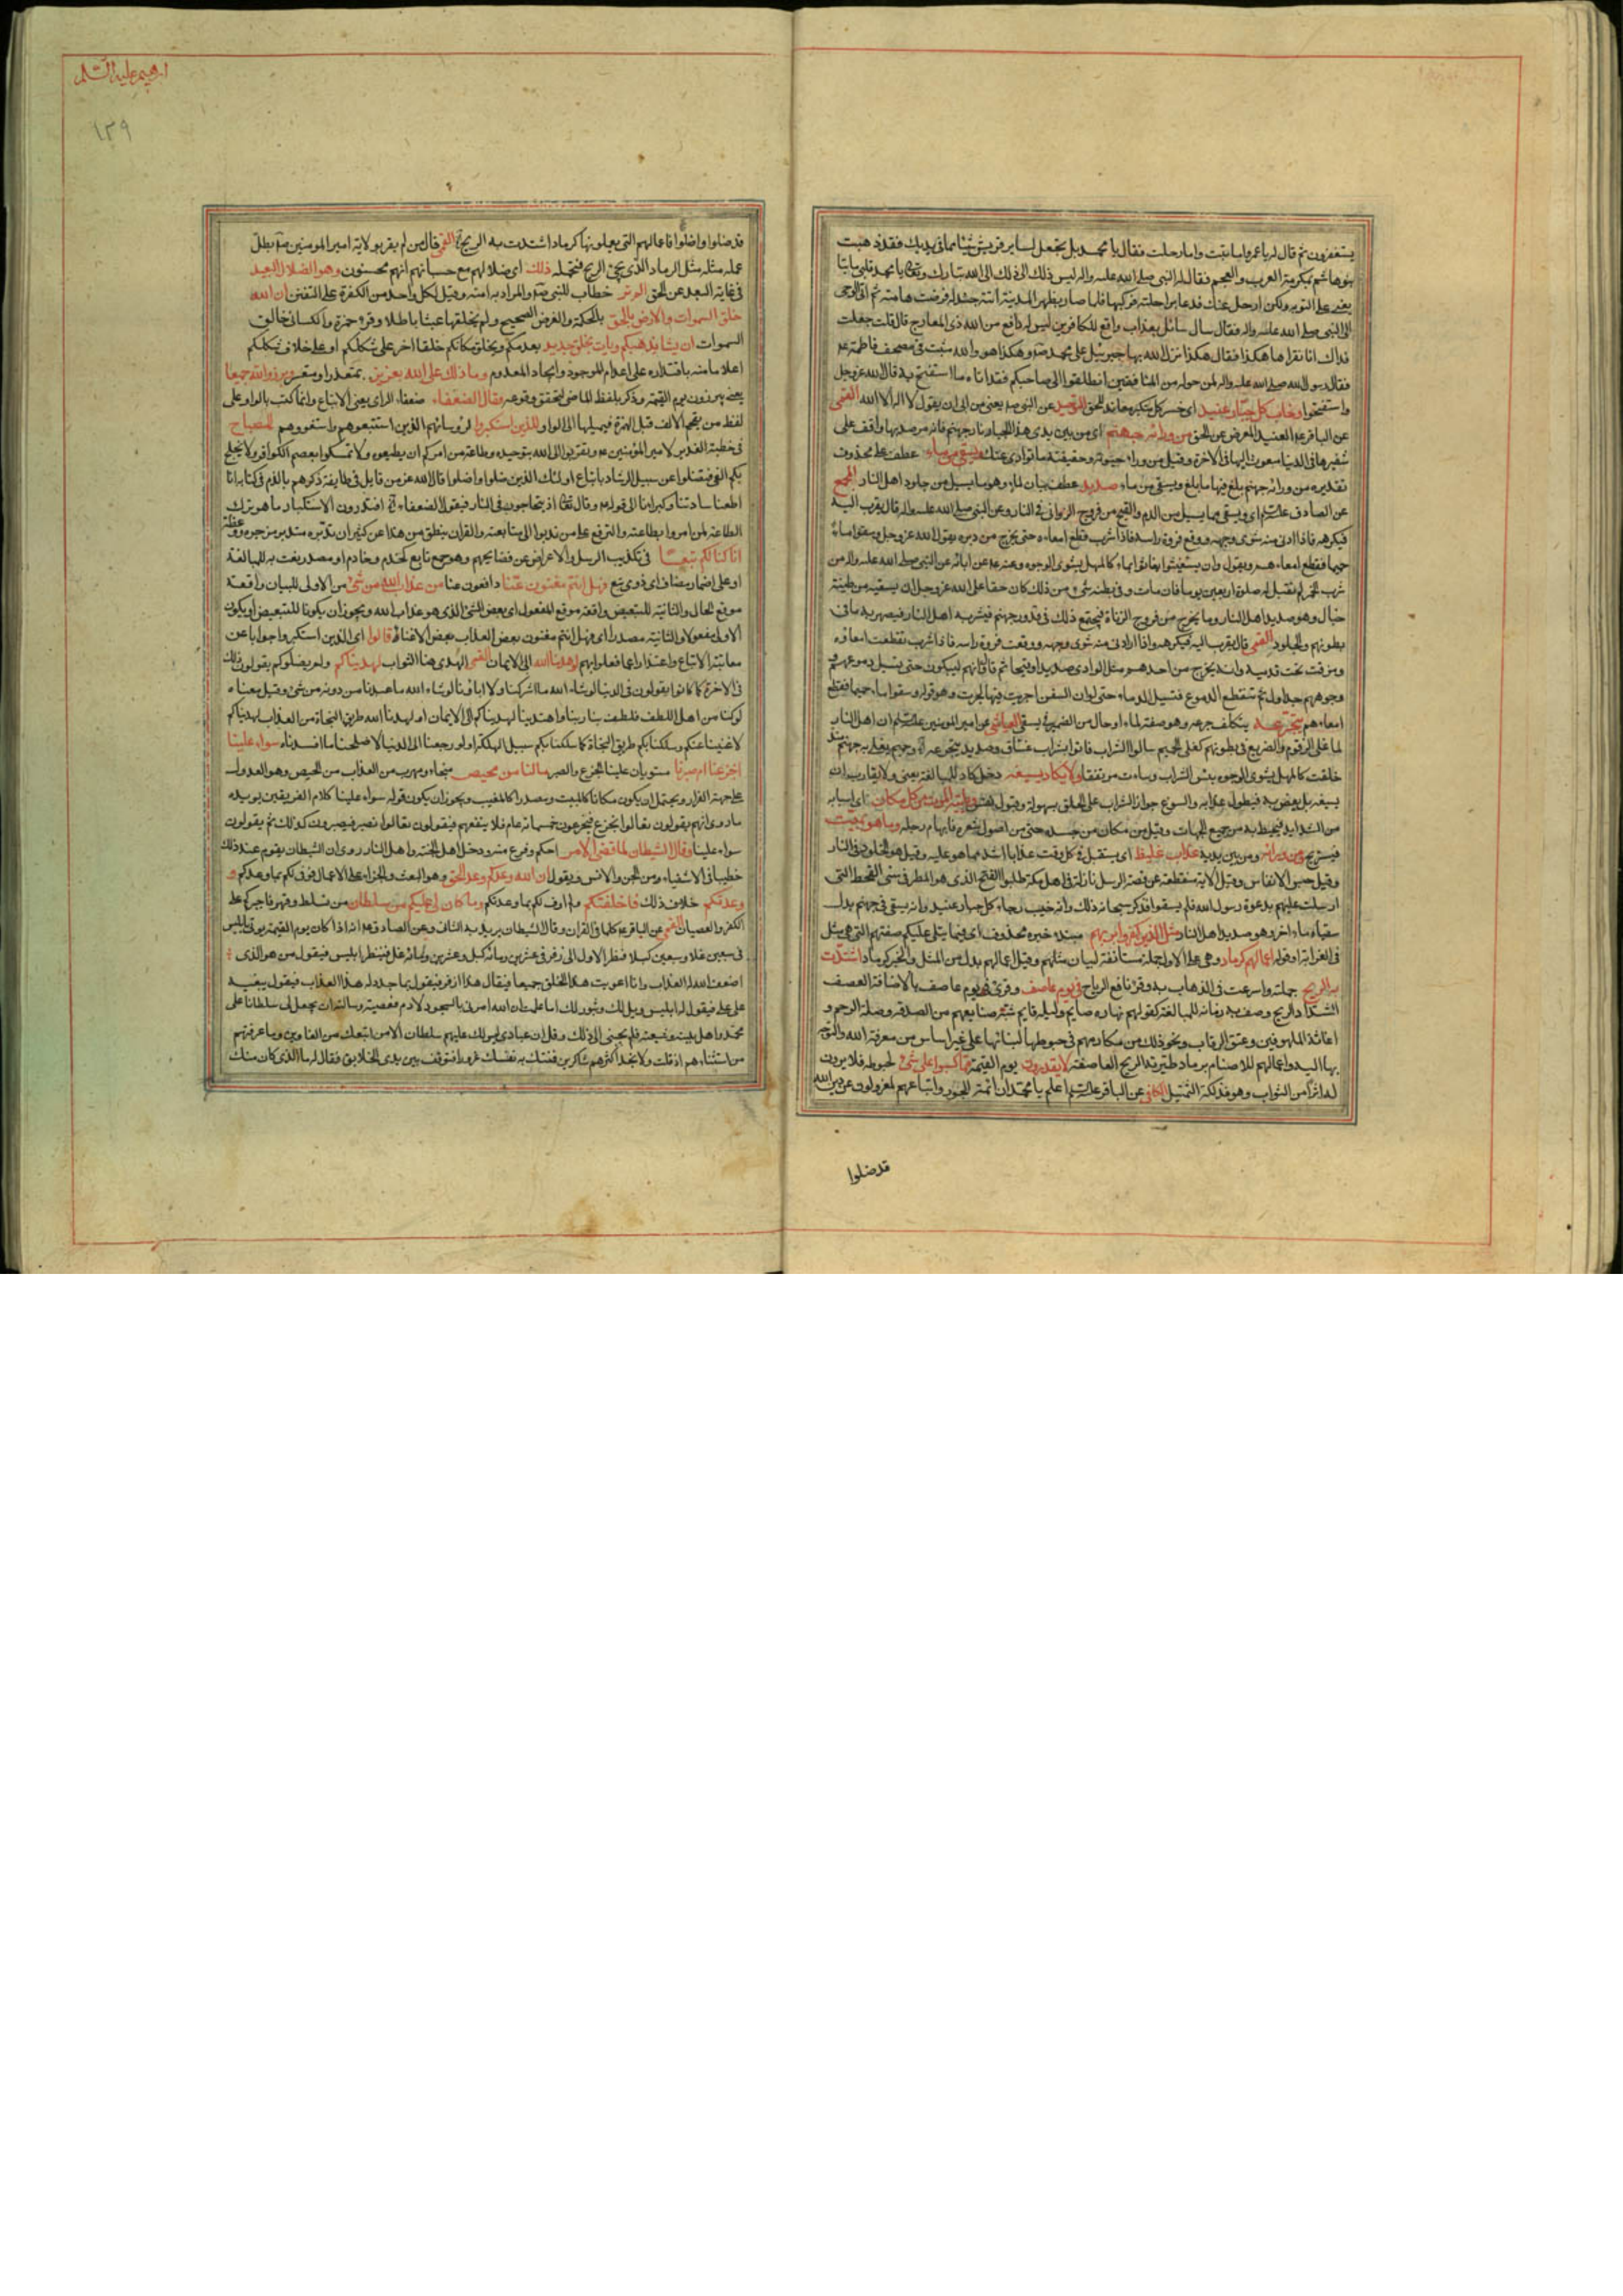 يستغفرون ثم قال له يا عمرو اما تبت واما رحلت فقال يا محمد بل تجعل لساير قريش شيئا مما في يديك فقد ذهبت
بنو هاشم بمكرمة العرب والعجم فقال له النبي صلى الله عليه واله ليس ذلك الي ذلك الى الله تبارك وتعالى فقال يا محمد قلبي ما يتابعني
على التوبة ولكن ارحل عنك فدعا براحلته فركبها فلما صار بظهر المدينة اتته جندلة فرضت هامته ثم اتى الوحي
الى النبي صلى الله عليه واله فقال سال سائل بعذاب واقع للكافرين ليس له دافع من الله ذي المعارج قال قلت جعلت
فداك انا لا نقراها هكذا فقال هكذا نزل الله بها جبرئيل على محمد وهكذا هو والله مثبت في مصحف فاطمة
فقال رسول الله صلى الله عليه واله لمن حوله من المنافقين انطلقوا الى صاحبكم فقد اتاه ما استفتح به قال الله عز وجل
واستفتحوا وخاب كل جبار عنيد اي خسر كل متكبر معاند للحق التوحيد عن النبي يعني من ابى ان يقول لا اله الا الله القمي
عن الباقر العنيد المعرض عن الحق من ورائه جهنم اي من بين يدي هذا الجبار نار جهنم فانه مرصد بها واقف على
شفيرها في الدنيا مبعوث اليها في الاخرة وقيل من وراء حيوته وحقيقته ما توارى عنك ويسقى من ماء عطف على محذوف
تقديره من ورائه جهنم يلقى فيها ما يلقى ويسقى من ماء صديد عطف بيان لماء وهو ما يسيل من جلود اهل النار المجمع
عن الصادق اي ويسقى مما يسيل من الدم والقيح من فروج الزواني في النار وعن النبي صلى الله عليه واله قال يقرب اليه
فيكرهه فاذا ادني منه شوى وجهه ووقع فروة راسه فاذا شرب قطع امعاءه حتى يخرج من دبره يقول الله عز وجل وسقوا ماء
حميما فقطع امعاءهم ويقول وان يستغيثوا يغاثوا بماء كالمهل يشوي الوجوه وعنه عن ابائه عن النبي صلى الله عليه واله من
شرب الخمر لم تقبل له صلوة اربعين يوما فان مات وفي بطنه شيء من ذلك كان حقا على الله عز وجل ان يسقيه من طينة
خبال وهو صديد اهل النار وما يخرج من فروج الزناة فيجتمع ذلك في قدور جهنم فيشربه اهل النار فيصهر به ما في
بطونهم والجلود القمي قال يقرب اليه فيكرهه واذا ادني منه شوى وجهه ووقعت فروة راسه فاذا شرب تقطعت امعاؤه
ومزقت تحت قدميه وانه يخرج من احدهم مثل الوادي صديدا وقيحا ثم قال وانهم ليبكون حتى تسيل دموعهم
وجوههم جداول ثم تنقطع الدموع فتسيل الدماء حتى لو ان السفن اجريت فيها لجرت وهو قوله وسقوا ماء حميما فقطع
امعاءهم يتجرعه يتكلف جرعه وهو صفة لماء او حال من الضمير في يسقى العياشي عن امير المؤمنين ان اهل النار
لما غلى الزقوم والضريع في بطونهم كغلي الحميم سالوا الشراب فاتوا بشراب غساق وصديد يتجرعه وحميم يغلي به جهنم منذ
خلقت كالمهل يشوي الوجوه بئس الشراب وساءت مرتفقا ولا يكاد يسيغه دخل كاد للمبالغة يعني ولا يقارب ان
يسيغه بل يغص به فيطول عذابه والسوغ جواز الشراب على الحلق بسهولة وقبول نفس وياتيه الموت من كل مكان اي اسبابه
من الشدايد فيحيط به من جميع الجهات وقيل من مكان من جسده حتى من اصول شعره وابهام رجله وما هو بميت
فيستريح ومن ورائه ومن بين يديه عذاب غليظ اي يستقبل في كل وقت عذابا اشد مما هو عليه وقيل هو الخلود في النار
وقيل حبس الانفاس وقيل الاية منقطعة عن قصة الرسل نازلة في اهل مكة طلبوا الفتح الذي هو المطر في سني القحط التي
ارسلت عليهم بدعوة رسول الله فلم يسقوا فذكر سبحانه ذلك وانه خيب رجاء كل جبار عنيد وانه يسقى في جهنم بدل
سقياه ماء اخر وهو صديد اهل النار مثل الذين كفروا بربهم مبتدا خبره محذوف اي فيما يتلى عليكم صفتهم التي هي مثل
في الغرابة او قوله اعمالهم كرماد وهي على الاول جملة مستانفة لبيان مثلهم وقيل اعمالهم بدل من المثل والخبر كرماد اشتدت
به الريح حملته واسرعت في الذهاب به وقرئ نافع الرياح في يوم عاصف وقرئ في يوم عاصف بالاضافة العصف
اشتداد الريح وصف به زمانه للمبالغة كقولهم نهاره صايم وليله قايم شبه صنايعهم من الصدقة وصلة الرحم و
اغاثة الملهوفين وعتق الرقاب ونحو ذلك من مكارمهم في حبوطها لبنائها على غير اساس من معرفة الله والتوجه
بها اليه واعمالهم للاصنام برماد طيرته الريح العاصفة لا يقدرون يوم القيمة مما كسبوا على شيء لحبوطه فلا يرون
له اثرا من الثواب وهو فذلكة التمثيل الكافي عن الباقر اعلم يا محمد ان ائمة الجور واتباعهم لمعزولون عن دين الله
قد ضلوا
ابرهيم عليه السلم
١٣٩
قد ضلوا واضلوا فاعمالهم التي يعملونها كرماد اشتدت به الريح القمي قال من لم يقر بولاية امير المومنين بطل
عمله مثله مثل الرماد الذي يجئ الريح فتحمله ذلك اي ضلالهم مع حسبانهم انهم محسنون وهو الضلال البعيد
في غاية البعد عن الحق الم تر خطاب للنبي والمراد به امته وقيل لكل واحد من الكفرة على التفنن ان الله
خلق السموات والارض بالحق بالحكمة والغرض الصحيح ولم يخلقها عبثا باطلا وقرء حمزة والكسائي خالق
السموات ان يشا يذهبكم ويات بخلق جديد يعدمكم ويخلق مكانكم خلقا اخر على شكلكم او على خلاف شكلكم
اعلاما منه باقتداره على اعدام الموجود وايجاد المعدوم وما ذلك على الله بعزيز بمتعذر او متعسر وبرزوا لله جميعا
يعني يبرزون يوم القيمة وذكر بلفظ الماضي لتحقق وقوعه وقال الضعفاء ضعفاء الراي يعني الاتباع وانما كتب بالواو على
لفظ من يفخم الالف قبل الهمزة فيميلها الى الواو للذين استكبروا لرؤسائهم الذين استتبعوهم واستغووهم المصباح
في خطبة الغدير لامير المؤمنين وتقربوا الى الله بتوحيده وطاعة من امركم ان تطيعوه ولا تمسكوا بعصم الكوافر ولا يجلح
بكم الغي فتضلوا عن سبيل الرشاد باتباع اولئك الذين ضلوا واضلوا قال الله عز من قايل في طايفة ذكرهم بالذم في كتابه انا
اطعنا سادتنا وكبراءنا الى قوله وقال تعالى اذ يتحاجون في النار فيقول الضعفاء افتدرون الاستكبار ما هو ترك
الطاعة لمن امروا بطاعته والترفع على من ندبوا الى متابعته والقران ينطق من هذا عن كثير ان تدبره متدبر زجره ووعظه
انا كنا لكم تبعا في تكذيب الرسل والاعراض عن نصايحهم وهو جمع تابع كخدم وخادم او مصدر نعت به للمبالغة
او على اضمار مضاف اي ذوي تبع فهل انتم مغنون عنا دافعون عنا من عذاب الله من شيء من الاولى للبيان واقعة
موقع الحال والثانية للتبعيض واقعة موقع المفعول اي بعض الشيء الذي هو عذاب الله ويجوز ان يكونا للتبعيض او يكون
الاولى مفعولا والثانية مصدرا اي فهل انتم مغنون بعض العذاب بعض الاغناء قالوا اي الذين استكبروا جوابا عن
معاتبة الاتباع واعتذارا عما فعلوا بهم لو هدينا الله الى الايمان القمي الهدى هنا الثواب لهديناكم ولم نضلوكم يقولون ذلك
في الاخرة كما كانوا يقولون في الدنيا لو شاء الله ما اشركنا ولا اباؤنا لو شاء الله ما عبدنا من دونه من شيء وقيل معناه
لو كنا من اهل اللطف فلطف بنا ربنا واهتدينا لهديناكم الى الايمان او لهدينا الله طريق النجاة من العذاب لهديناكم
لاغنينا عنكم وسلكنا بكم طريق النجاة كما سلكنا بكم سبيل الهلكة او لو رجعنا الى الدنيا لاصلحنا ما افسدناه سواء علينا
اجزعنا ام صبرنا مستويان علينا الجزع والصبر ما لنا من محيص منجاء ومهرب من العذاب من الحيص وهو العدول
على جهة الفرار ويحتمل ان يكون مكانا كالمبيت ومصدرا كالمغيب ويجوز ان يكون قوله سواء علينا كلام الفريقين يؤيده
ما روي انهم يقولون تعالوا نجزع فيجزعون خمسمائة عام فلا ينفعهم فيقولون تعالوا نصبر فيصبرون كذلك ثم يقولون
سواء علينا وقال الشيطان لما قضي الامر احكم وفرغ منه ودخل اهل الجنة واهل النار روي ان الشيطان يقوم عند ذلك
خطيبا في الاشقياء من الجن والانس ويقول ان الله وعدكم وعد الحق وهو البعث والجزاء على الاعمال فوفى لكم بما وعدكم و
وعدتكم خلاف ذلك فاخلفتكم ولم اوف لكم بما وعدتكم وما كان لي عليكم من سلطان من تسلط وقهر فاجبركم على
الكفر والعصيان القمي عن الباقر كلما في القران وقال الشيطان يريد به الثاني وعن الصادق انه اذا كان يوم القيمة يؤتى بابليس
في سبعين غلا وسبعين كبلا فنظر الاول الى زفر في عشرين ومائة كبل وعشرين ومائة غل فينظر ابليس فيقول من هو الذي
اضعف الله له العذاب وانا اغويت هذا الخلق جميعا فيقال هذا زفر فيقول بما جدد له هذا العذاب فيقول ببغيه
على علي فيقول له ابليس ويل لك وثبور لك اما علمت ان الله امرني بالسجود لادم فعصيته وسالته ان يجعل لي سلطانا على
محمد واهل بيته وشيعته فلم يجبني الى ذلك وقال ان عبادي ليس لك عليهم سلطان الا من اتبعك من الغاوين وما عرفتهم
من استثناهم اذ قلت ولا تجد اكثرهم شاكرين فمنتك به نفسك غرورا فتوقف بين يدي الخلايق فقال له ما الذي كان منك